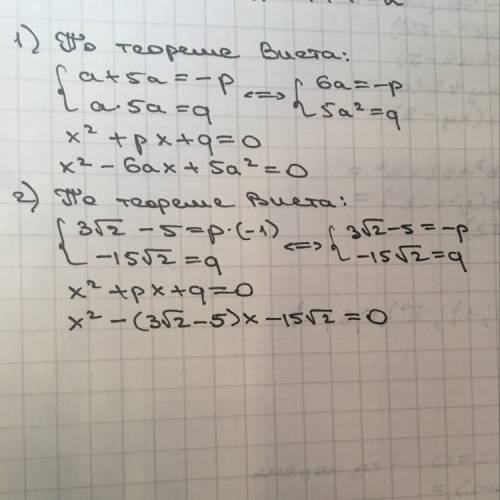 1) По теореме Виета:
{ a+5a = -p <=> { 6a = -p
a·5a = q 5a² = q
x² + px + q = 0
x² - 6ax + 5a² = 0
2) По теореме Виета:
{ 3√2 - 5 = p·(-1) <=> { 3√2 - 5 = -p
-15√2 = q -15√2 = q
x² + px + q = 0
x² - (3√2 - 5)x - 15√2 = 0